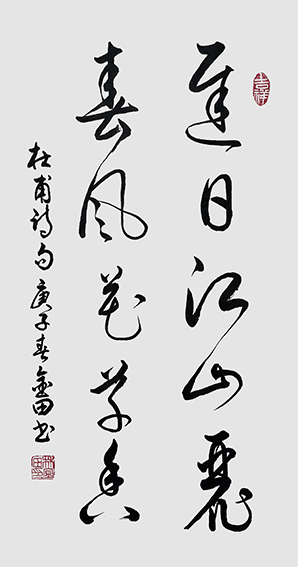 遲日江山麗
春風花草香
杜甫詩句庚子春金田書
吉祥